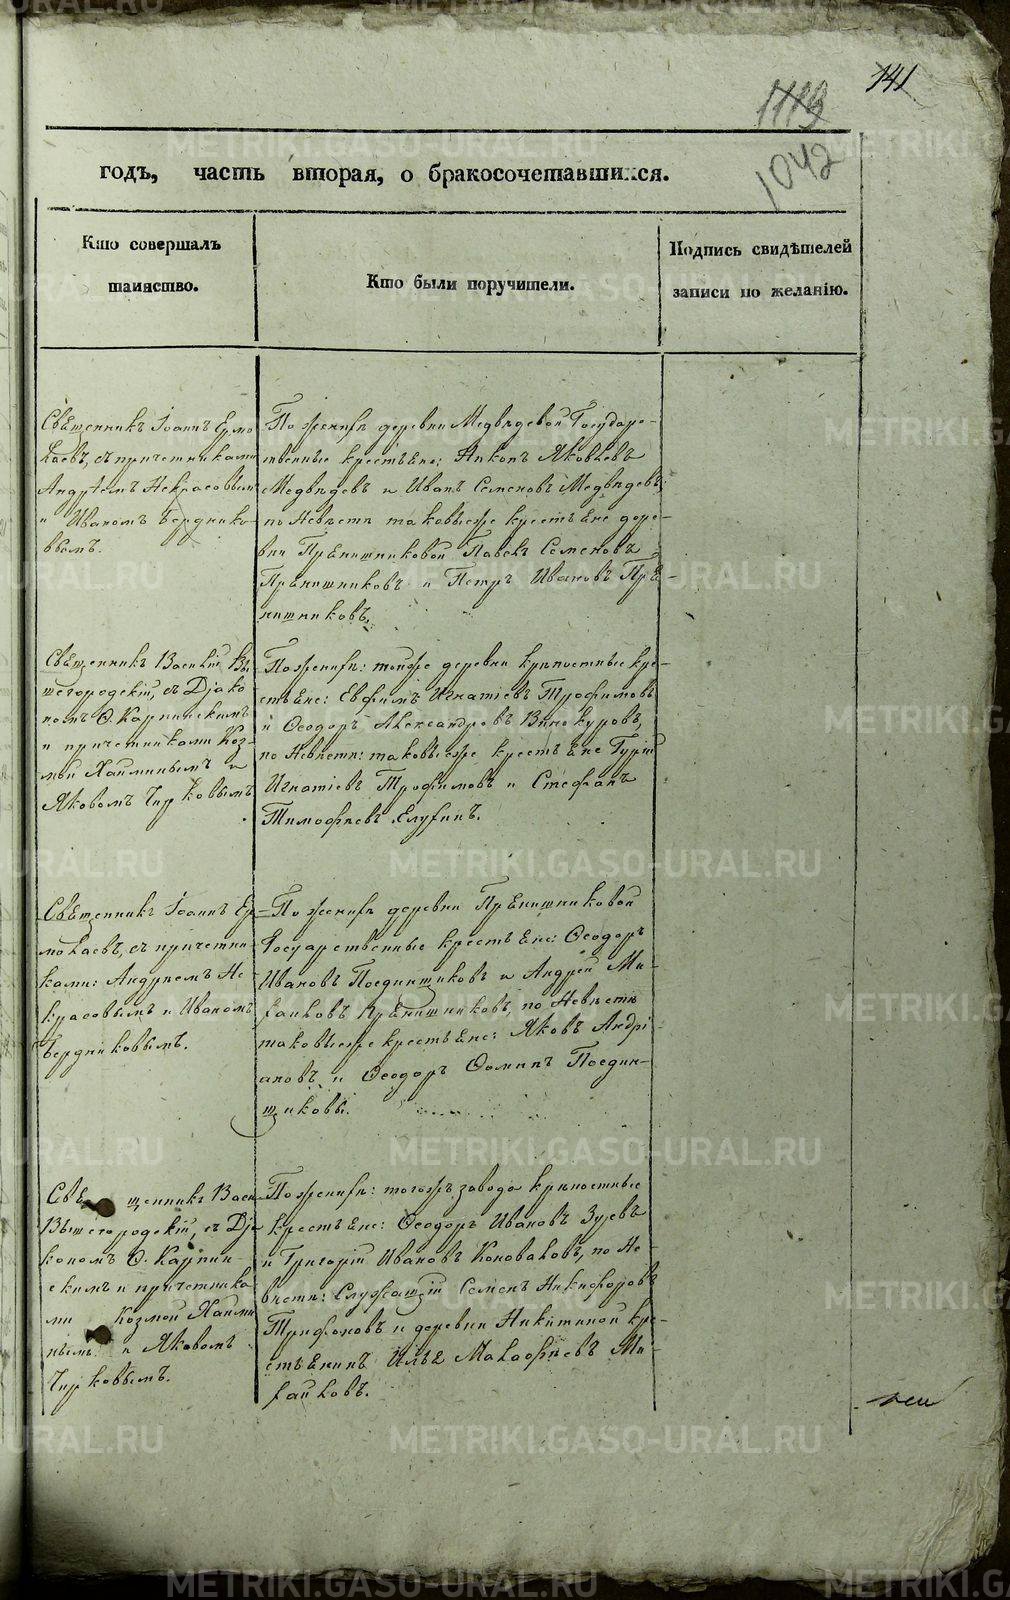 141
1113
1042
годъ, часть вторая, о бракосочетавшихся.
Кто совершалъ
таинство.
Кто были поручители.
Подпись свидѣтелей
записи по желанію.
Священникъ Іоаннъ Ермо
лаевъ, съ причетниками
Андреемъ Некрасовымъ
и Иваномъ Берднико-
вымъ.
По женихѣ деревни Медвѣдевой Государс-
твенные крестьяне: Никонъ Яковлевъ
Медвѣдевъ и Иванъ Семеновъ Медвѣдевъ;
по Невѣстѣ таковыеже крестьяне дере-
вни Прянишниковой Павелъ Семеновъ
Прянишниковъ и Петръ Ивановъ Пря-
нишниковъ.
Священникъ Василій Вы
шегородскій, съ Діако
номъ Ѳ. Карпинскимъ
и причетниками Коз-
мой Хайминымъ и
Яковомъ Чирковымъ
По женихѣ: тойже деревни крѣпостные кре-
стьяне: Евфимъ Игнатіевъ Трофимовъ
и Ѳеодоръ Александровъ Винокуровъ,
по Невѣстѣ: таковыеже крестьяне Гурій
Игнатіевъ Трофимовъ и Стефанъ
Тимофѣевъ Елухинъ.
Священникъ Іоаннъ Ер
молаевъ, съ причетни-
ками: Андреемъ Не
красовымъ и Иваномъ
Бердниковымъ.
По женихѣ деревни Прянишниковой
Государственные крестьяне: Ѳеодоръ
Ивановъ Поединщиковъ и Андрей Ми-
хайловъ Прянишниковъ, по Невѣстѣ
таковыеже крестьяне: Яковъ Андрі-
ановъ и Ѳеодоръ Ѳоминъ Поедин-
щиковы.
Священникъ Васи
Вышегородскій, съ Діа
кономъ Ѳ. Карпин-
скимъ и причетника
ми Козмой Хайми
нымъ и Яковомъ
Чирковымъ.
По женихѣ: тогожъ завода крѣпостные
крестьяне: Ѳеодоръ Ивановъ Зуевъ
и Григорій Ивановъ Коноваловъ, по Не-
вѣстѣ: Служащій Семенъ Никифоровъ
Трифоновъ и деревни Никитиной кре-
стьянинъ Илья Малафѣевъ Ми-
хайловъ.
METRIKI.GASO-URAL.RU